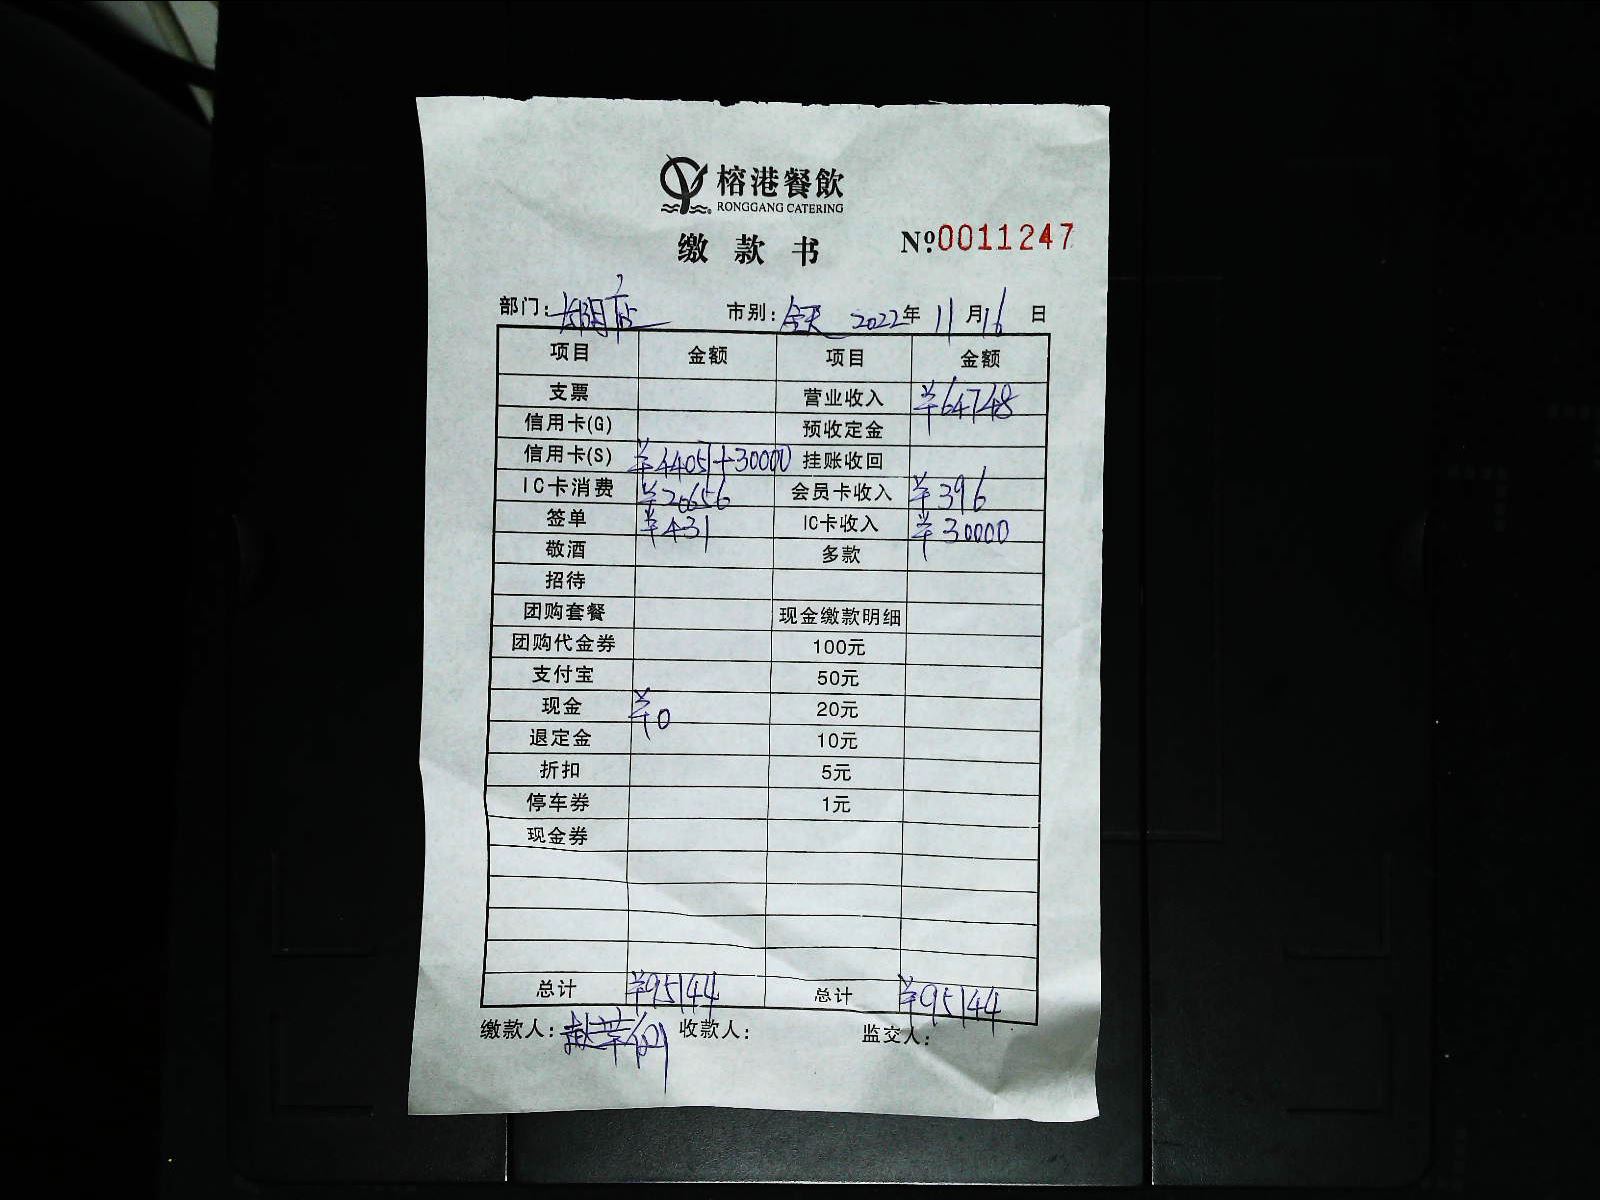 榕港餐飲
RONGGANG CATERING
缴款书 №0011247
部门: 店 市别: 全天 2022年 11月16日
项目 金额 项目 金额
支票 营业收入 ¥64748
信用卡(G) 预收定金
信用卡(S) ¥44057+30000 挂账收回
IC卡消费 ¥20656 会员卡收入 ¥396
签单 ¥431 IC卡收入 ¥30000
敬酒 多款
招待
团购套餐 现金缴款明细
团购代金券 100元
支付宝 50元
现金 ¥0 20元
退定金 10元
折扣 5元
停车券 1元
现金券
总计 ¥95144 总计 ¥95144
缴款人: 收款人: 监交人: